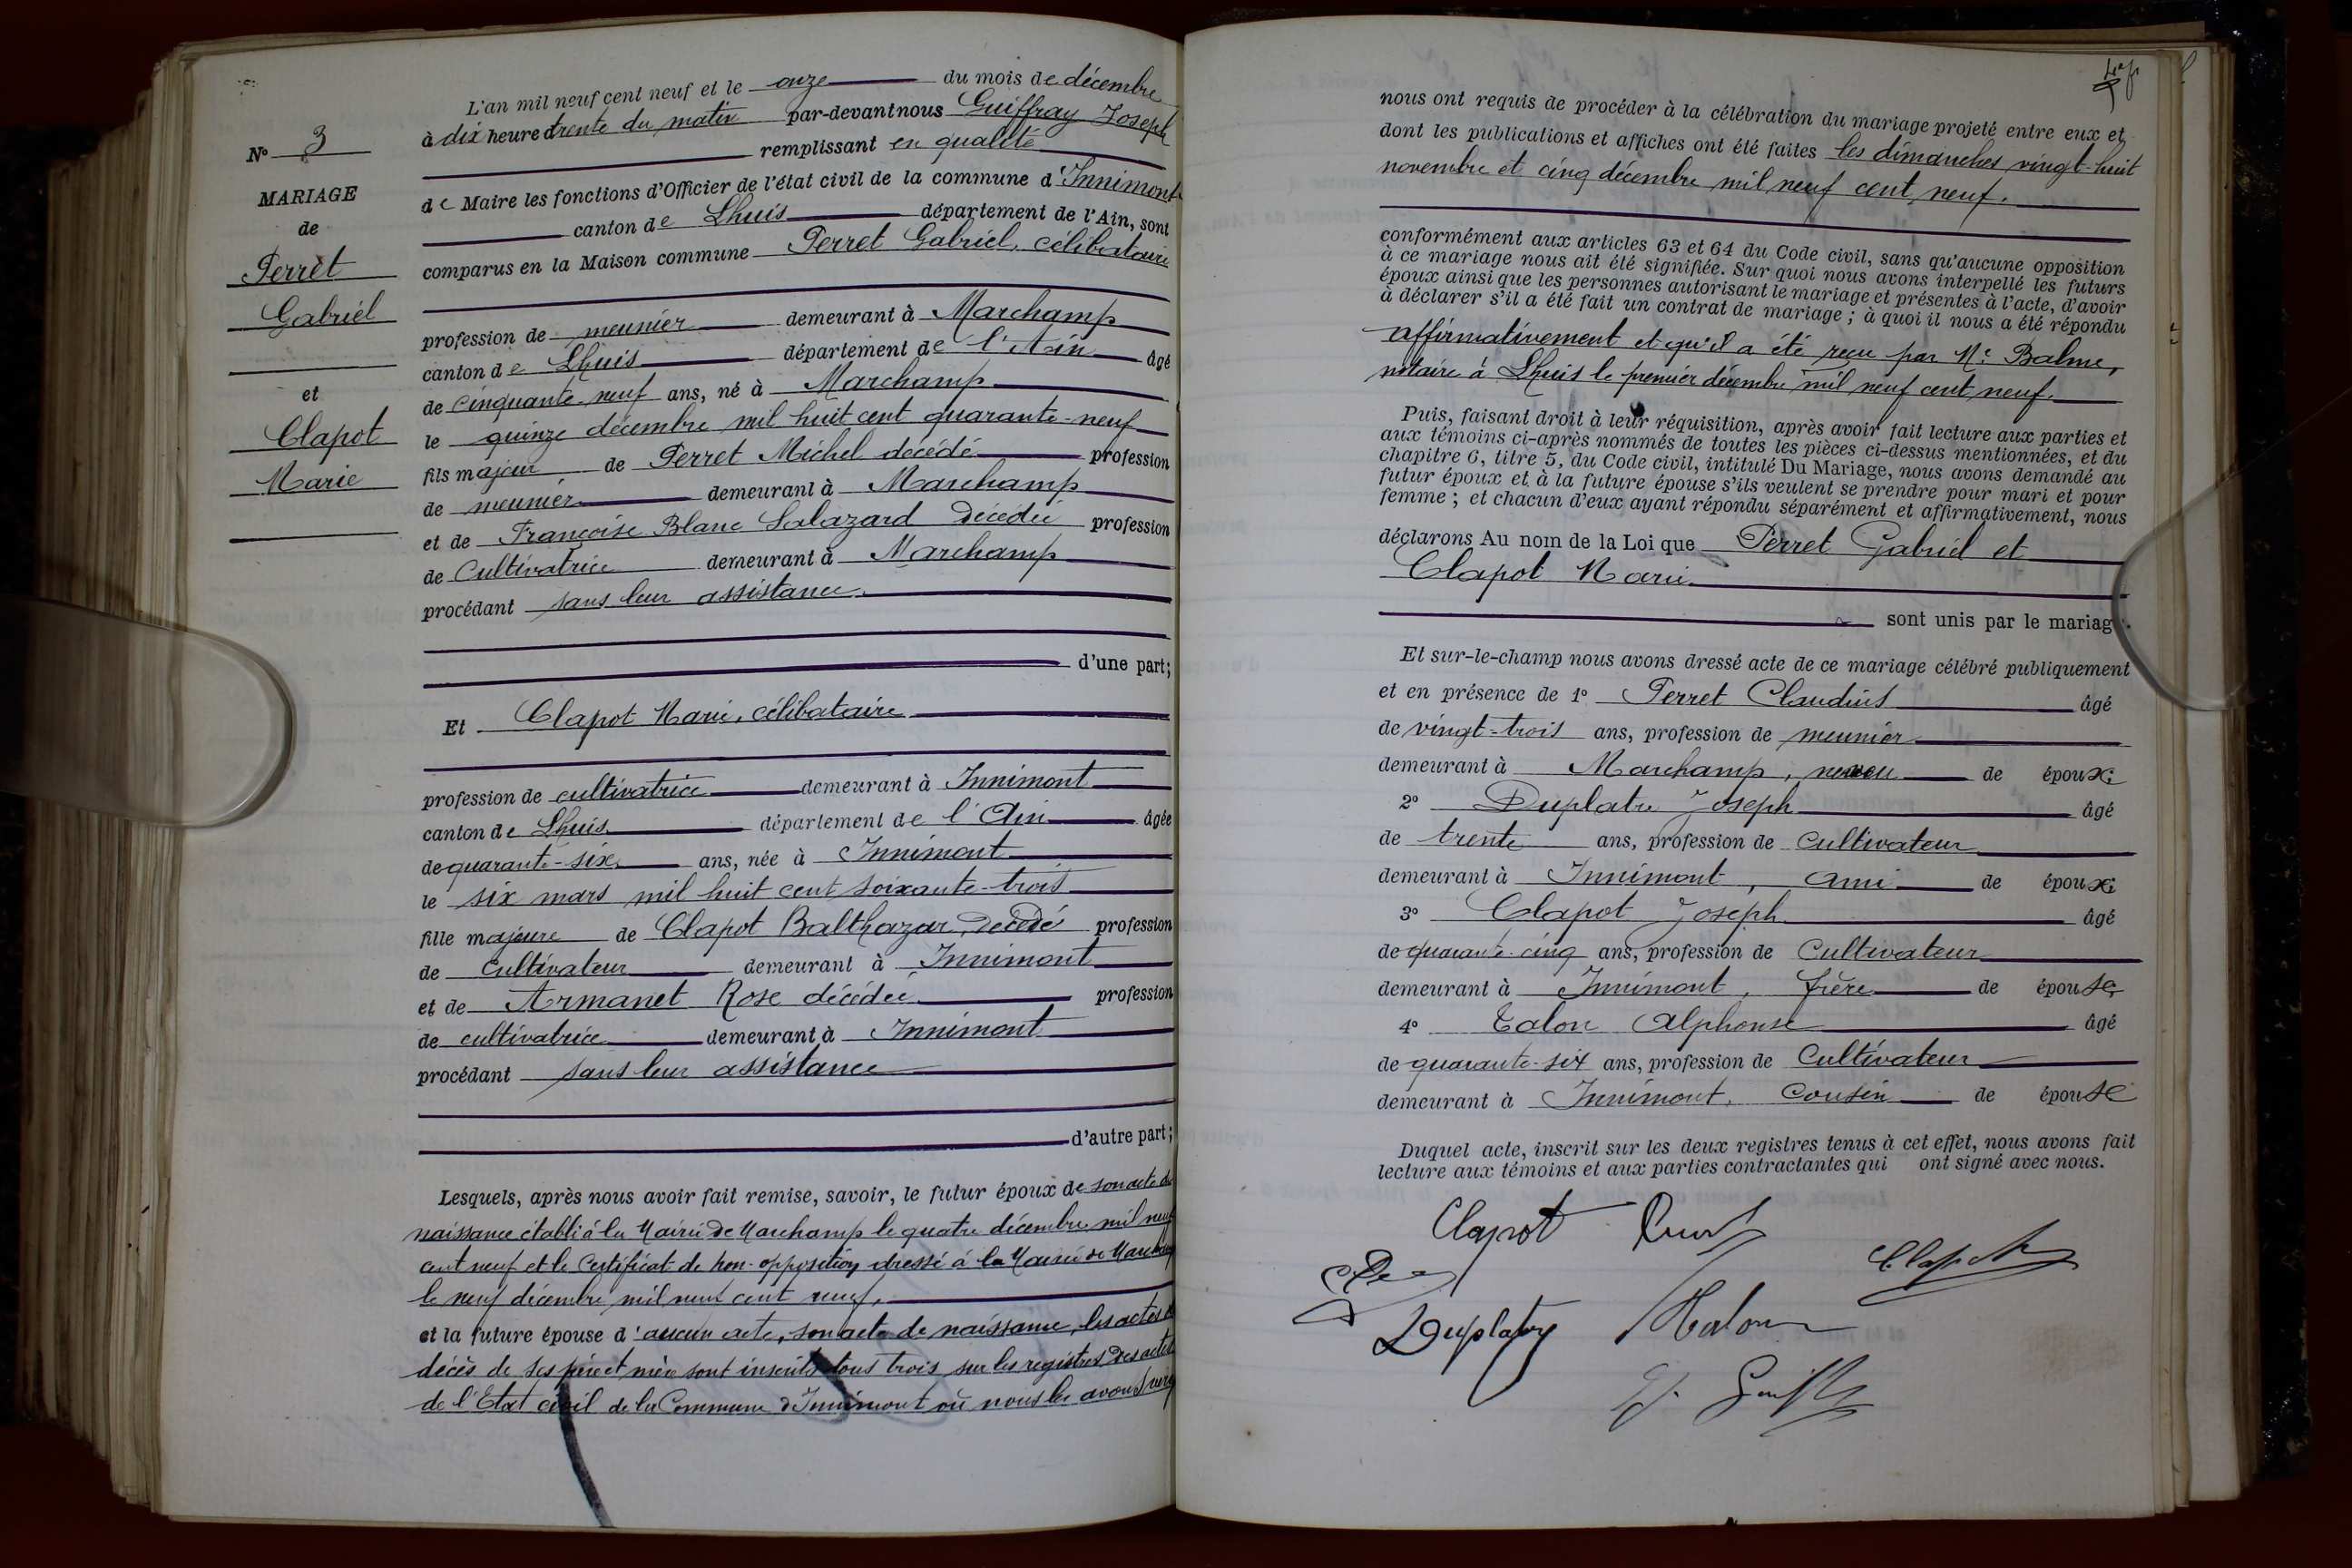 L'an mil neuf cent neuf et le onze du mois de décembre
à dix heure trente du matin par-devant nous Guiffray Joseph
remplissant en qualité
de Maire les fonctions d'Officier de l'état civil de la commune d'Innimont
canton de Lhuis département de l'Ain, sont
comparus en la Maison commune Perret Gabriel, célibataire
profession de meunier demeurant à Marchamp
canton de Lhuis département de l'Ain âgé
de cinquante-neuf ans, né à Marchamp
le quinze décembre mil huit cent quarante-neuf
fils majeur de Perret Michel décédé profession
de meunier demeurant à Marchamp
et de Françoise Blanc Salazard décédée profession
de Cultivatrice demeurant à Marchamp
procédant sans leur assistance.
d'une part;
Et Clapot Marie, célibataire
profession de cultivatrice demeurant à Innimont
canton de Lhuis département de l'Ain âgée
de quarante-six ans, née à Innimont
le six mars mil huit cent soixante-trois
fille majeure de Clapot Balthazar, décédé profession
de cultivateur demeurant à Innimont
et de Armanet Rose décédée profession
de cultivatrice demeurant à Innimont
procédant sans leur assistance
d'autre part;
Lesquels, après nous avoir fait remise, savoir, le futur époux de son acte de
naissance établi à la Mairie de Marchamp le quatre décembre mil neuf
cent neuf et le Certificat de non-opposition dressé à la Mairie de Marchamp
le neuf décembre mil neuf cent neuf,
et la future épouse d'aucun acte, son acte de naissance, les actes de
décès de ses père et mère sont inscrits tous trois sur les registres des actes
de l'Etat civil de la Commune d'Innimont où nous les avons
N° 3
MARIAGE
de
Perret
Gabriel
et
Clapot
Marie
nous ont requis de procéder à la célébration du mariage projeté entre eux et
dont les publications et affiches ont été faites les dimanches vingt-huit
novembre et cinq décembre mil neuf cent neuf.
conformément aux articles 63 et 64 du Code civil, sans qu'aucune opposition
à ce mariage nous ait été signifiée. Sur quoi nous avons interpellé les futurs
époux ainsi que les personnes autorisant le mariage et présentes à l'acte, d'avoir
à déclarer s'il a été fait un contrat de mariage; à quoi il nous a été répondu
affirmativement et qu'il a été reçu par Me Balme,
notaire à Lhuis le premier décembre mil neuf cent neuf.
Puis, faisant droit à leur réquisition, après avoir fait lecture aux parties et
aux témoins ci-après nommés de toutes les pièces ci-dessus mentionnées, et du
chapitre 6, titre 5, du Code civil, intitulé Du Mariage, nous avons demandé au
futur époux et à la future épouse s'ils veulent se prendre pour mari et pour
femme; et chacun d'eux ayant répondu séparément et affirmativement, nous
déclarons Au nom de la Loi que Perret Gabriel et
Clapot Marie
sont unis par le mariage.
Et sur-le-champ nous avons dressé acte de ce mariage célébré publiquement
et en présence de 1° Perret Claudius âgé
de vingt-trois ans, profession de meunier
demeurant à Marchamp, neveu de époux;
2° Duplatre Joseph âgé
de trente ans, profession de cultivateur
demeurant à Innimont, ami de époux;
3° Clapot Joseph âgé
de quarante-cinq ans, profession de Cultivateur
demeurant à Innimont, frère de épouse,
4° Talon Alphonse âgé
de quarante-six ans, profession de Cultivateur
demeurant à Innimont, Cousin de épouse
Duquel acte, inscrit sur les deux registres tenus à cet effet, nous avons fait
lecture aux témoins et aux parties contractantes qui ont signé avec nous.
Clapot
Clapot
Duplatre Talon